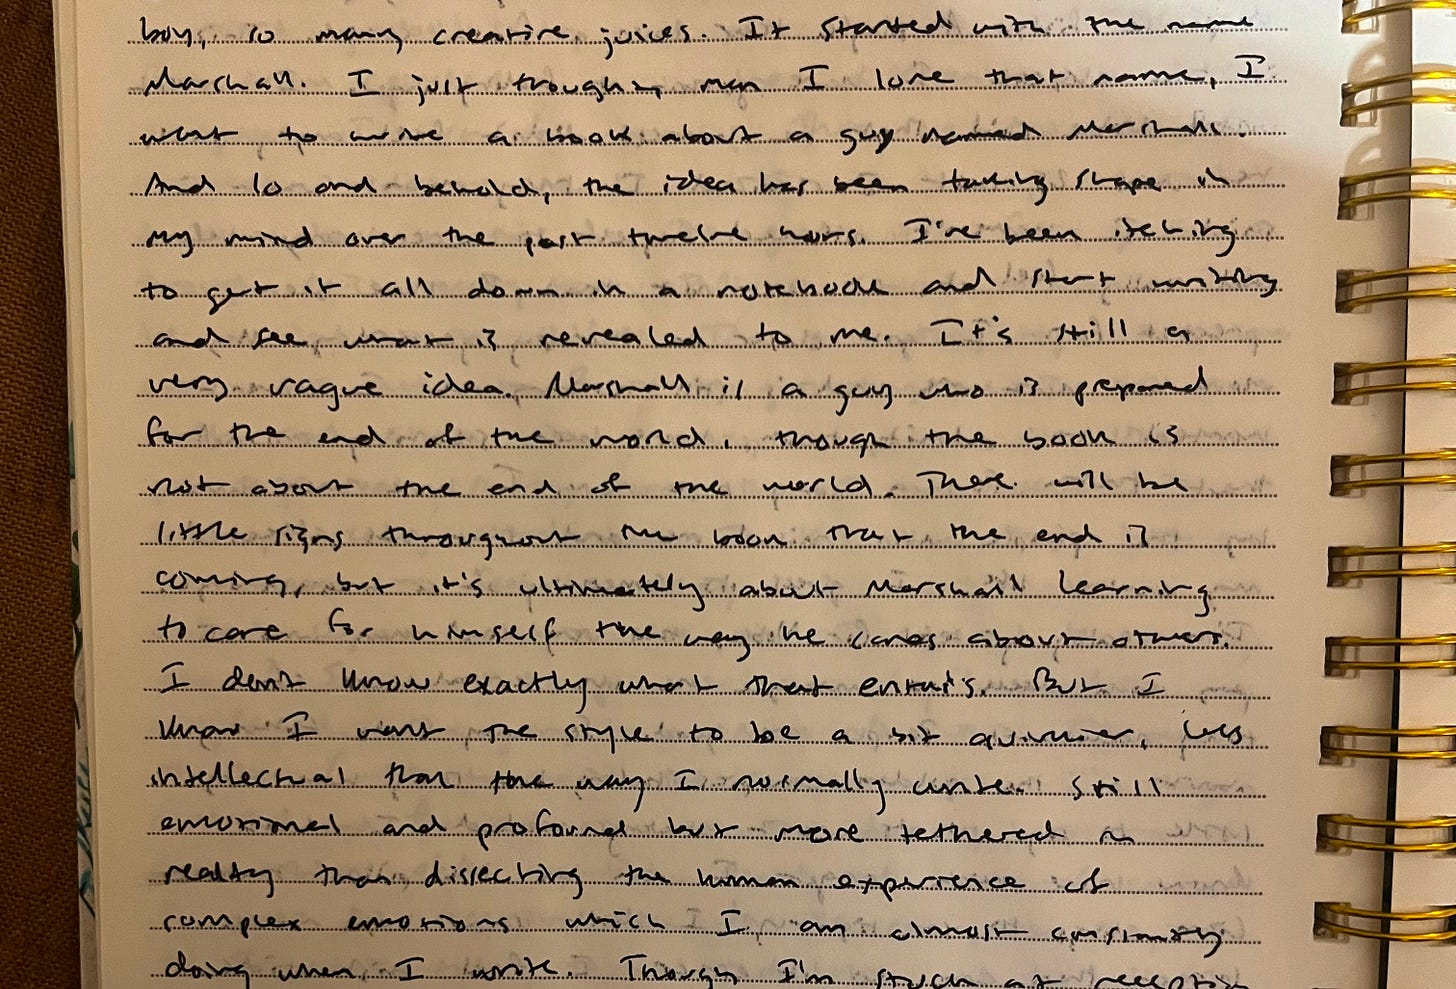 boy, so many creative juices. It started with the name
Marshall. I just thought, man I love that name, I
want to write a book about a guy named Marshall.
And lo and behold, the idea has been taking shape in
my mind over the past twelve hours. I've been itching
to get it all down in a notebook and start writing
and see what is revealed to me. It's still a
very vague idea. Marshall is a guy who is prepared
for the end of the world, though the book is
not about the end of the world. There will be
little signs throughout the book that the end is
coming, but it's ultimately about Marshall learning
to care for himself the way he cares about others.
I don't know exactly what that entails. But I
know I want the style to be a bit quirkier, less
intellectual than the way I normally write. Still
emotional and profound but more tethered in
reality than dissecting the human experience of
complex emotions which I am almost constantly
doing when I write. Though I'm stuck at reception